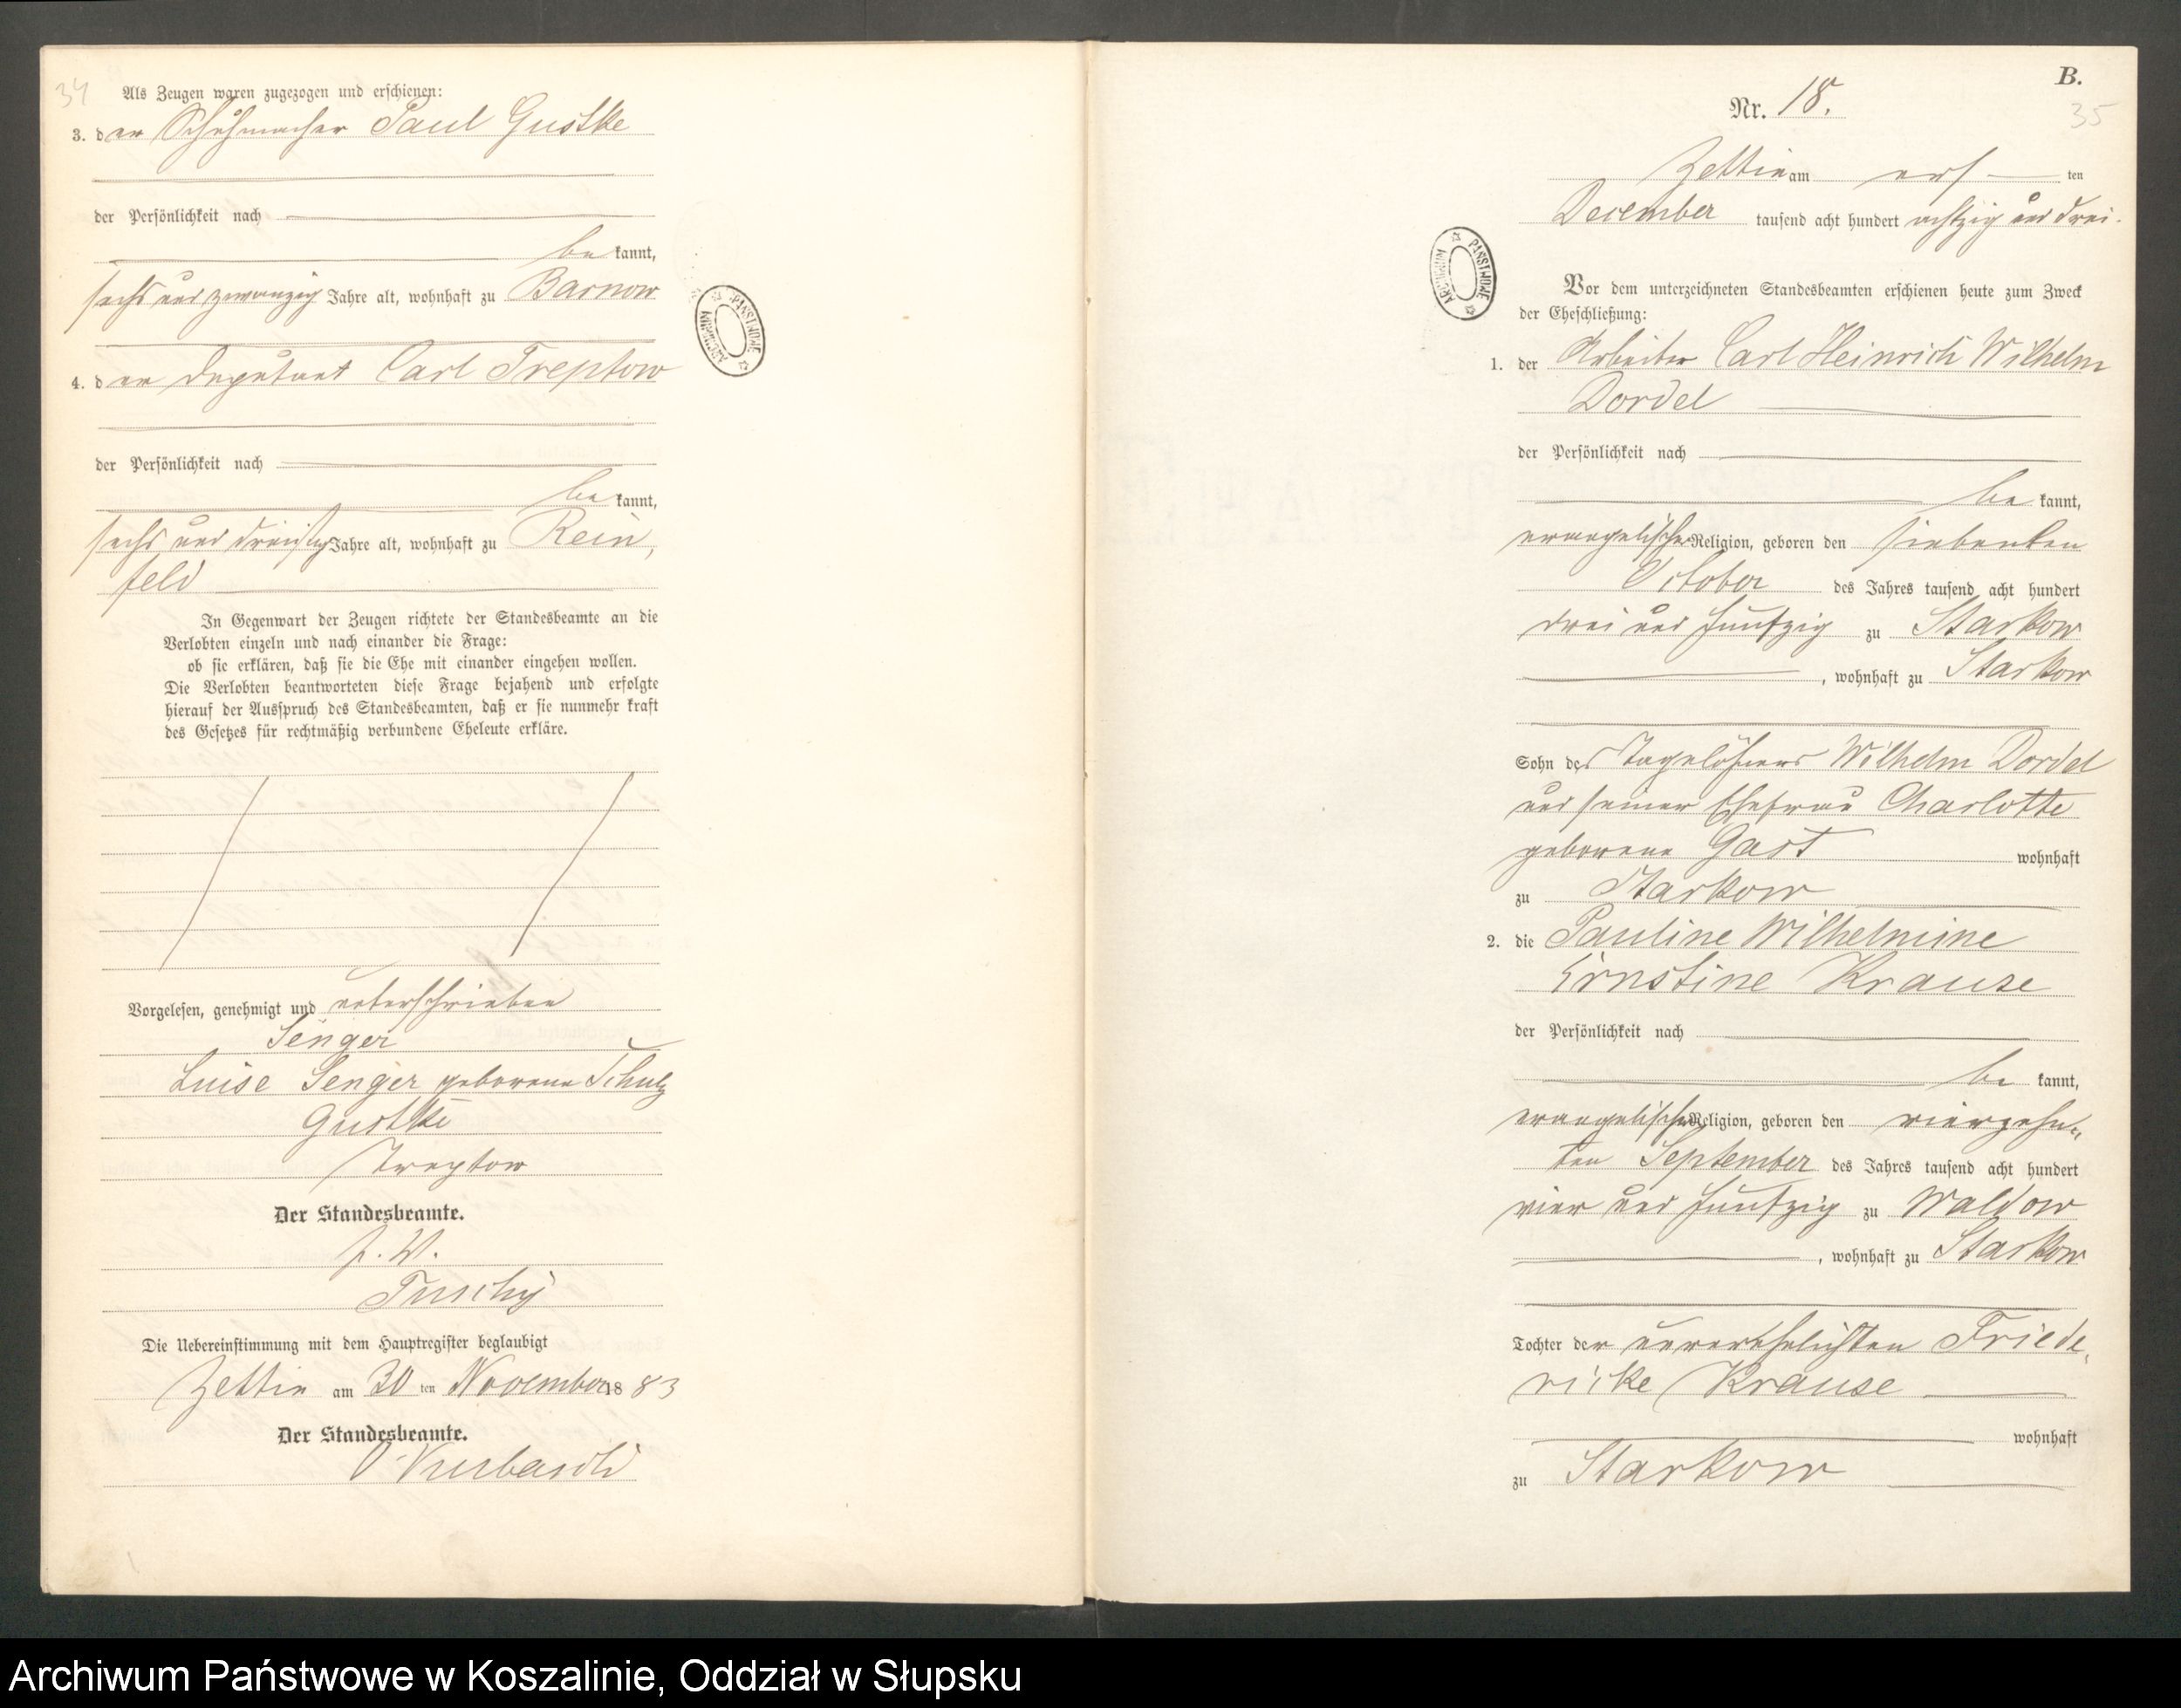 34
Als Zeugen waren zugezogen und erschienen:
3. der Schuhmacher Paul Gustke
der Persönlichkeit nach
be kannt,
sechs und zwanzig Jahre alt, wohnhaft zu Barnow
4. der Deputant Carl Treptow
der Persönlichkeit nach
be kannt,
sechs und dreißig Jahre alt, wohnhaft zu Rein,
feld
In Gegenwart der Zeugen richtete der Standesbeamte an die
Verlobten einzeln und nach einander die Frage:
ob sie erklären, daß sie die Ehe mit einander eingehen wollen.
Die Verlobten beantworteten diese Frage bejahend und erfolgte
hierauf der Ausspruch des Standesbeamten, daß er sie nunmehr kraft
des Gesetzes für rechtmäßig verbundene Eheleute erkläre.
Vorgelesen, genehmigt und unterschrieben
Senger
Luise Senger geborene Schulz
Gustke
Treptow
Der Standesbeamte.
Die Uebereinstimmung mit dem Hauptregister beglaubigt
Zettin am 30 ten November 18 83
Der Standesbeamte.
ARCHIWUM PAŃSTWOWE
B.
35
Nr. 18.
Zettin am ers ten
December tausend acht hundert achtzig und drei.
ARCHIWUM PAŃSTWOWE
Vor dem unterzeichneten Standesbeamten erschienen heute zum Zweck
der Eheschließung:
1. der Arbeiter Carl Heinrich Wilhelm
Dordel
der Persönlichkeit nach
be kannt,
evangelischer Religion, geboren den siebenten
October des Jahres tausend acht hundert
drei und fünfzig zu Starkow
, wohnhaft zu Starkow
Sohn des Tagelöhners Wilhelm Dordel
und seiner Ehefrau Charlotte
geborene Gast wohnhaft
zu Starkow
2. die Pauline Wilhelmine
Ernstine Krause
der Persönlichkeit nach
be kannt,
evangelischer Religion, geboren den vierzehn„
ten September des Jahres tausend acht hundert
vier und fünfzig zu Waldow
, wohnhaft zu Starkow
Tochter der unverehelichten Friede,
ricke Krause
wohnhaft
zu Starkow
Archiwum Państwowe w Koszalinie, Oddział w Słupsku